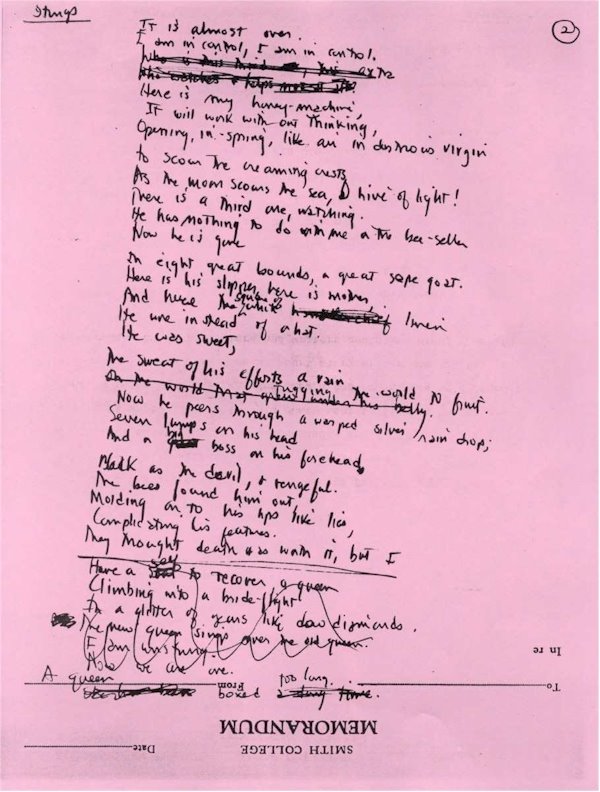 Stings
2
It is almost over.
I am in control, I am in control.
Here is my honey-machine,
It will work without thinking,
Opening, in spring, like an industrious virgin
To scour the creaming crests
As the moon scours the sea, O hive of light!
There is a third one, watching.
He has nothing to do with me or the bee-seller
Now he is gone
In eight great bounds, a great scape goat.
Here is his slipper, here is mother,
And here the square of white handkerchief linen
He wore instead of a hat.
He was sweet,
The sweat of his efforts a rain
On the world that grew under his belly.
Tugging the world to fruit.
Now he peers through a warped silver rain drop;
Seven lumps on his head
And a big boss on his forehead,
Black as the devil, & vengeful.
The bees found him out,
Molding on to his lips like lies,
Complicating his features.
They thought death was worth it, but I
Have a self to recover, a queen
Climbing into a bride-flight
In a glitter of years like dew diamonds.
The new queen sings over the old queen.
I am unstrung.
Now we are one.
A queen boxed too long.
In re
To From
MEMORANDUM
SMITH COLLEGE
Date